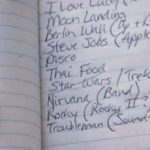 I Love Lucy (
Moon Landing
Berlin Wall (
Steve Jobs (Apple
Disco
Thai Food
Star Wars / Trek
Nirvana (Band)
Rocky (Rocky II?
Troubleman (Sound